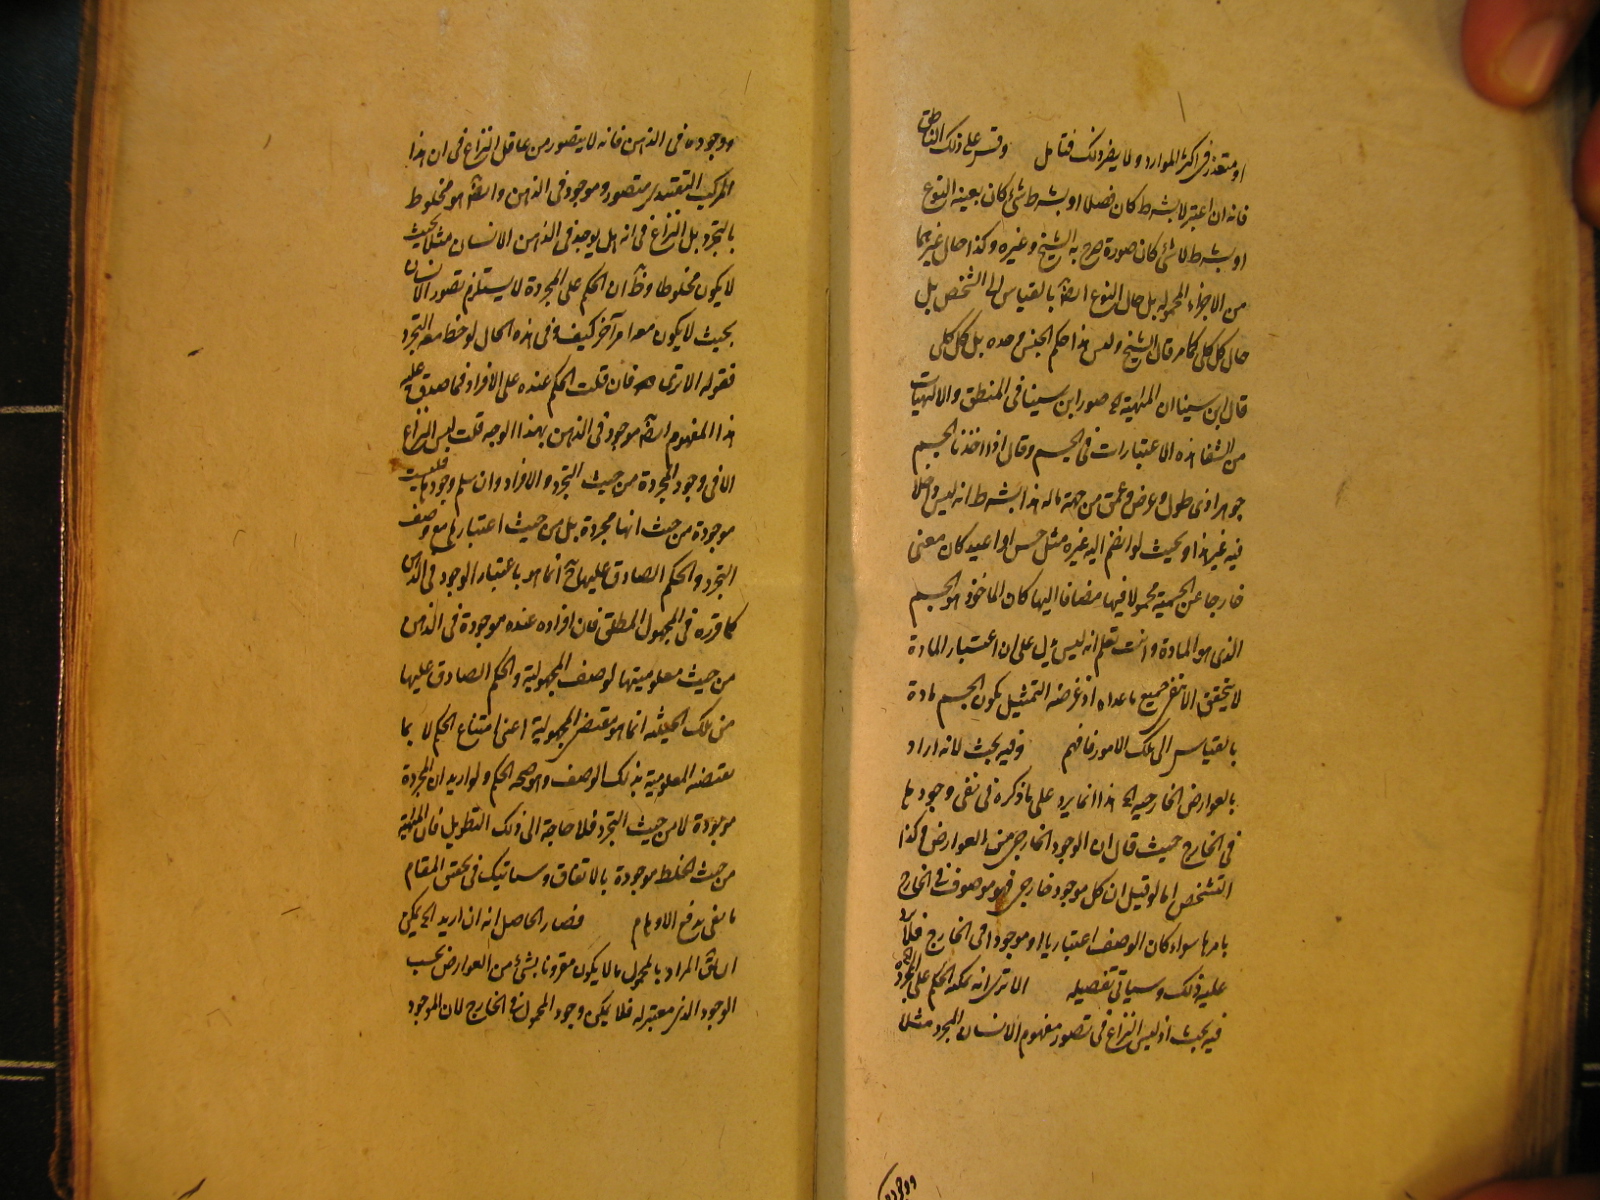 او متعذر فى اكثر الموارد ولا يضر ذلك فتامل وقس على ذلك الناطق
فانه ان اعتبر لا بشرط كان فصلا او بشرط شئ كان بعينه النوع
او بشرط لا شئ كان صورة صرح به الشيخ وغيره وكذا حال غيرهما
من الاجزاء المحمولة بل حال النوع ايضا بالقياس الى الشخص بل
حال كل كلى كما مر قال الشيخ وليس هذا حكم الجنس وحده بل كل كلى
قال ابن سينا ان المهية الخ صور ابن سينا فى المنطق والالهيات
من الشفا هذه الاعتبارات فى الجسم وقال اذا اخذنا الجسم
جوهرا ذى طول وعرض وعمق من جهة ماله هذا بشرط انه ليس داخلا
فيه غير هذا وبحيث لو انضم اليه غيره مثل حس او اغتذاء كان معنى
خارجا عن الجسمية محمولا فيها مضافا اليها كان الماخوذ هو الجسم
الذى هو المادة وانت تعلم انه ليس يدل على ان اعتبار المادة
لا يتحقق الا بنفى جميع ما عداه اذ غرضه التمثيل بكون الجسم مادة
بالقياس الى تلك الامور فافهم وفيه بحث لانه اراد
بالعوارض الخارجية الخ هذا انما يرد على ما ذكره فى نفى وجودها
فى الخارج حيث قال ان الوجود الخارجى من العوارض وكذا
التشخص اما لو قيل ان كل موجود خارجى فهو موصوف فى الخارج
بامر ما سواء كان الوصف اعتباريا او موجودا فى الخارج فلا يرد
عليه ذلك وسياتى تفصيله الا ترى انه يمكنه الحكم على المجردة الخ
فيه بحث اذ ليس النزاع فى تصور مفهوم الانسان المجرد مثلا
ووجوده
ووجوده فى الذهن فانه لا يتصور من عاقل النزاع فى ان هذا
المركب التقييدى متصور وموجود فى الذهن وايضا هو مخلوط
بالتجرد بل النزاع فى انه هل يوجد فى الذهن الانسان مثلا بحيث
لا يكون مخلوطا وظ ان الحكم على المجردة لا يستلزم تصور الانسان
بحيث لا يكون معه امر آخر كيف وفى هذه الحال لوحظ معه التجرد
فقوله الا ترى الخ فان قلت الحكم عنده على الافراد فما صدق عليه
هذا المفهوم ايضا موجود فى الذهن بهذا الوجه قلت ليس النزاع
الا فى وجود المجردة من حيث التجرد والافراد وان سلم وجودها فليست
موجودة من حيث انها مجردة بل من حيث اعتبارها مع وصف
التجرد والحكم الصادق عليها ح انما هو باعتبار الوجود فى الذهن
كما قرره فى المجهول المطلق فان افراده عنده موجودة فى الذهن
من حيث معلوميتها لوصف المجهولية والحكم الصادق عليها
من تلك الحيثية انما هو مقتضى المجهولية اعنى امتناع الحكم لا بما
يقتضيه المعلومية بذلك الوصف وهو صحة الحكم ولو اريد ان المجردة
موجودة لا من حيث التجرد فلا حاجة الى ذلك التطويل فان المهية
من حيث الخلط موجودة بالاتفاق وسياتيك فى تحقيق المقام
ما يفى بدفع الاوهام فصار الحاصل انه ان اريد الخ يمكن
ان يق المراد بالمحمول ما لا يكون مقرونا بشئ من العوارض بحسب
الوجود الذى معتبر له فلا يمكن وجود المحمول فى الخارج لان الموجود